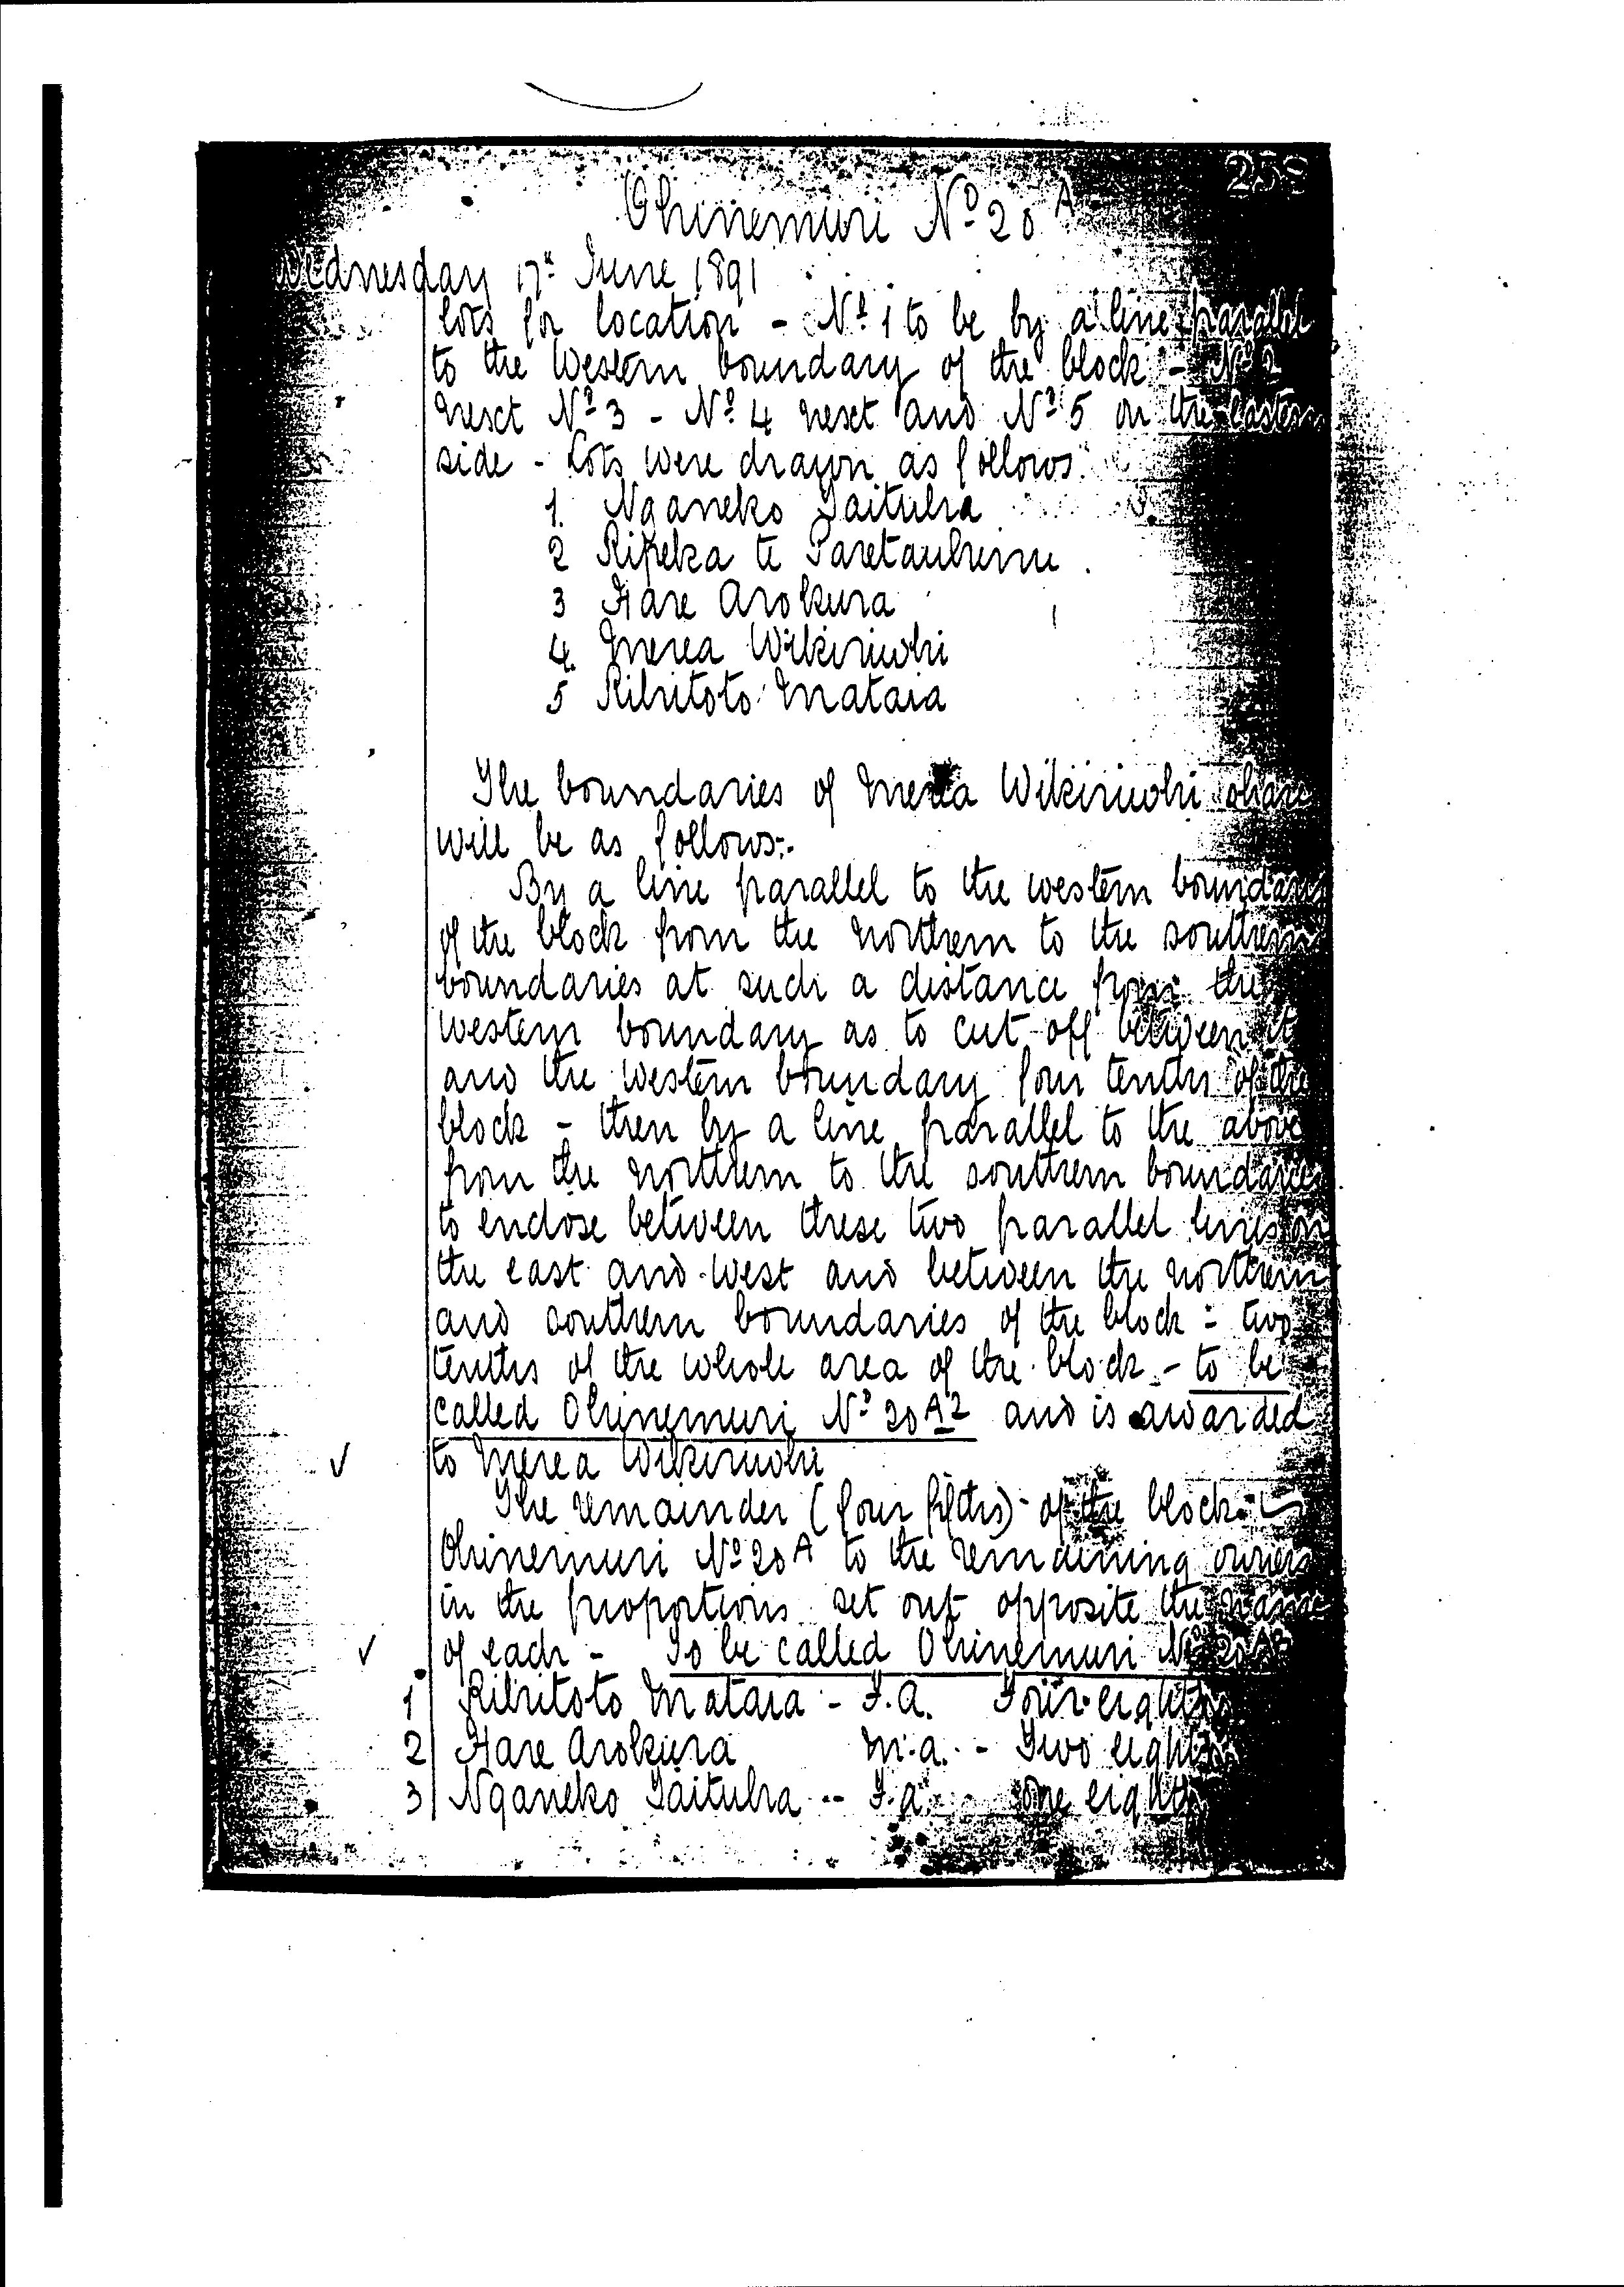 Ohinemuri No 20 A
Wednesday 17th June 1891
lots for location - No 1 to be by a line parallel
to the Western boundary of the block - No 2
next No 3 - No 4 next and No 5 on the eastern
side - Lots were drawn as follows
1. Nganeko Taituha
2 Ripeka te Paretauhinu
3 Hare Arokura
4. Merea Wikiriwhi
5 Rihitoto Mataia
The boundaries of Merea Wikiriwhi share
will be as follows:-
By a line parallel to the western boundary
of the block from the northern to the southern
boundaries at such a distance from the
western boundary as to cut off between it
and the western boundary four tenths of the
block - then by a line parallel to the above
from the northern to the southern boundaries
to enclose between these two parallel lines on
the east and west and between the northern
and southern boundaries of the block - two
tenths of the whole area of the block - to be
called Ohinemuri No 20 A2 and is awarded
to Merea Wikiriwhi
The remainder (four fifths) of the block
Ohinemuri No 20 A to the remaining owners
in the proportions set out opposite the name
of each - To be called Ohinemuri No
1 Rihitoto Mataia - F.a. Four eighths
2 Hare Arokura M.a. - Two eighths
3 Nganeko Taituha - F.a. one eighth